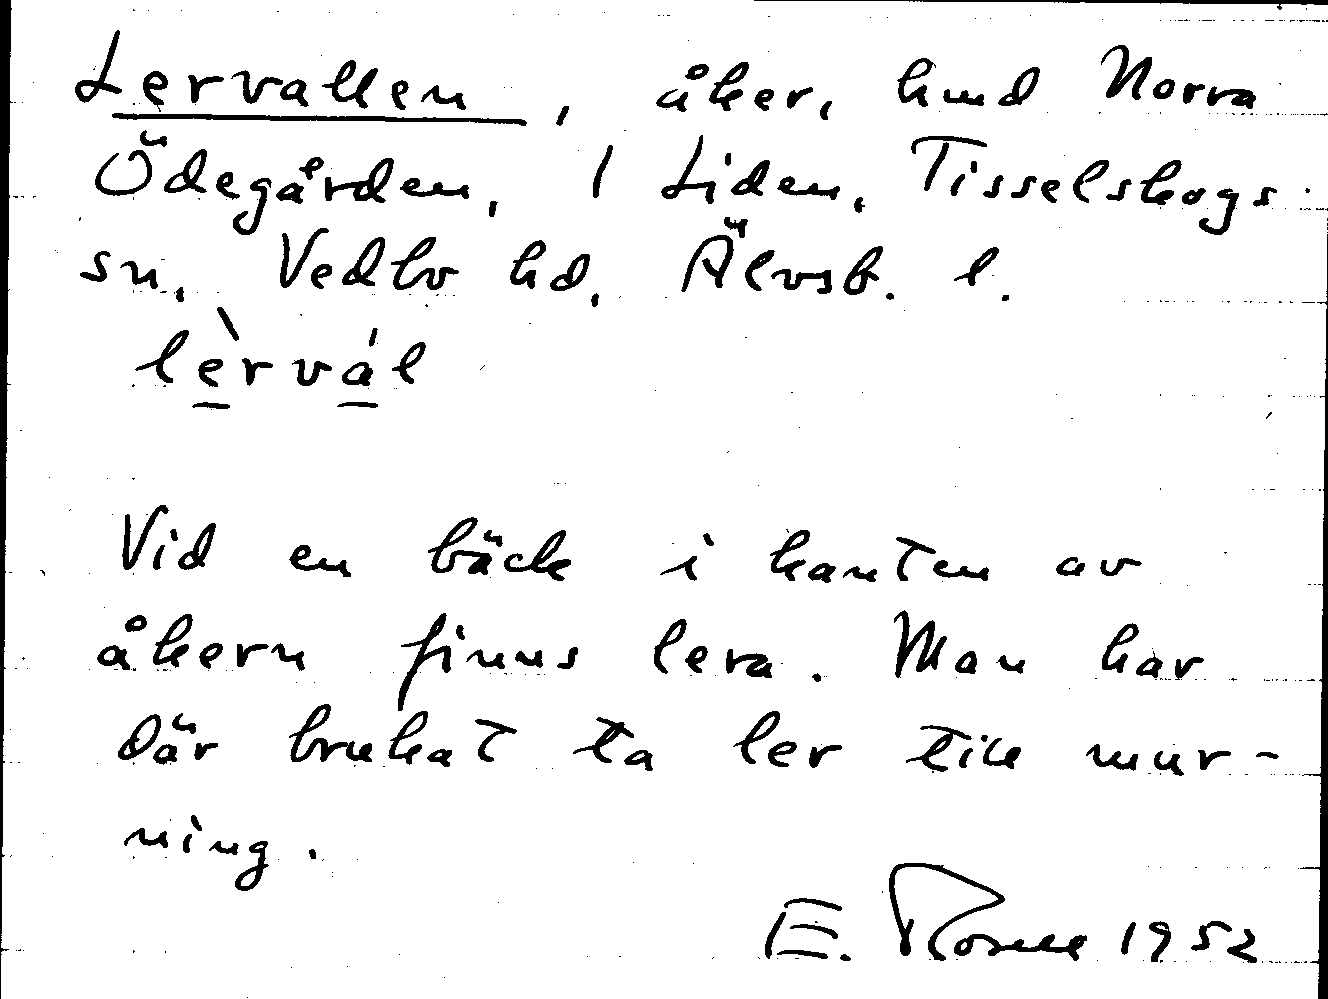 Lervallen, åker, hmd Norra
Ödegården, 1 Liden, Tisselskogs
sn, Vedbo hd, Älvsb. l.
lèrvál
Vid en bäck i kanten av
åkern finns lera. Man har
där brukat ta ler till mur-
ning.
E. 1952